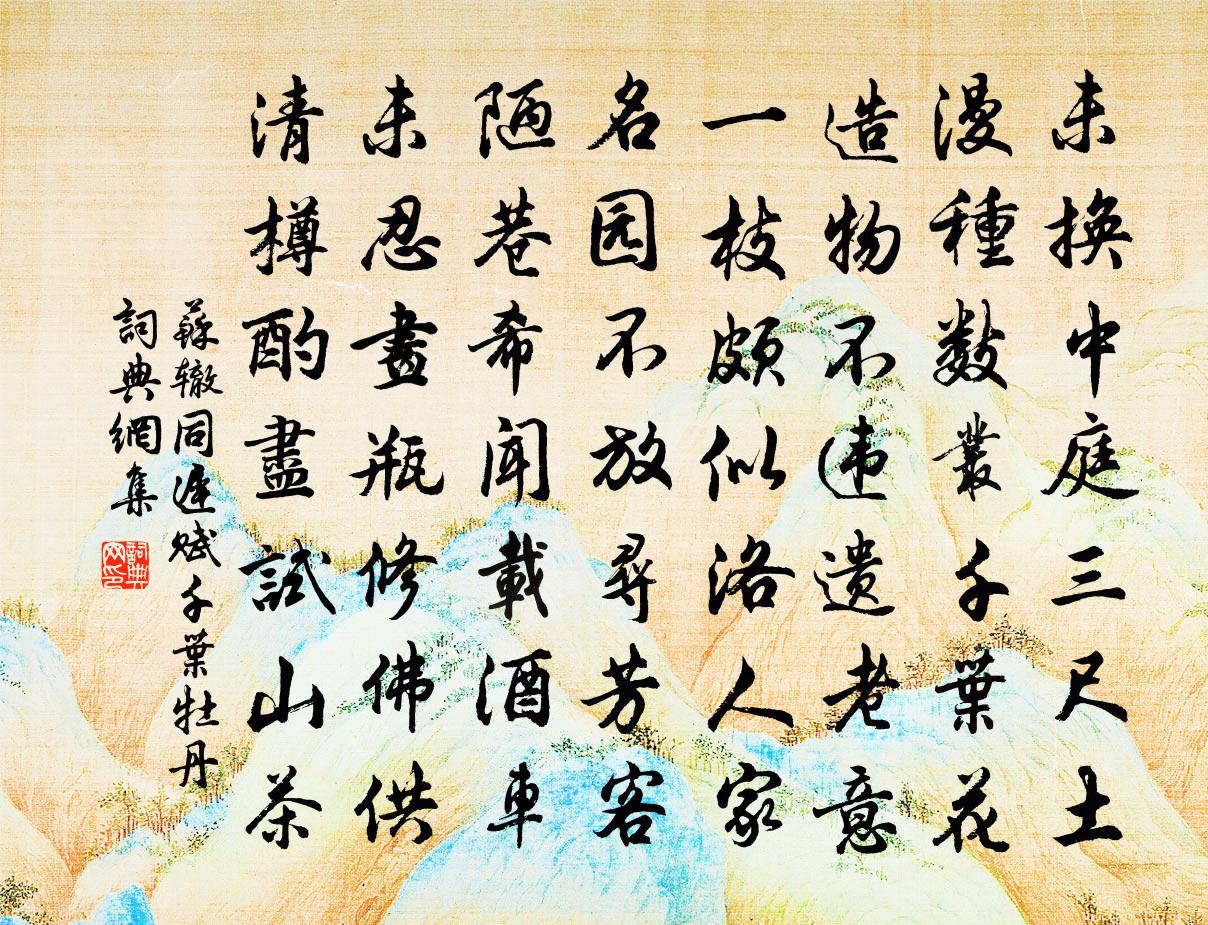 未換中庭三尺土
漫種數叢千葉花
造物不违遗老意
一枝頗似洛人家
名园不放尋芳客
陋巷希聞載酒車
未忍畫瓶修佛供
清樽酌盡試山茶
蘇辙同遲赋千葉牡丹
詞典網集
詞典网印